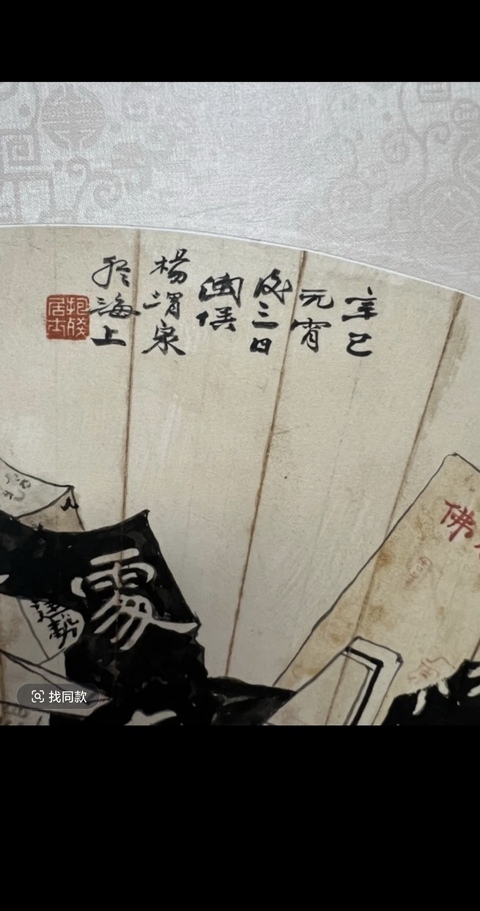 辛巳
元宵
後三日
陶僊
楊渭泉
於海上
抱殘
居士
佛
雲
找同款